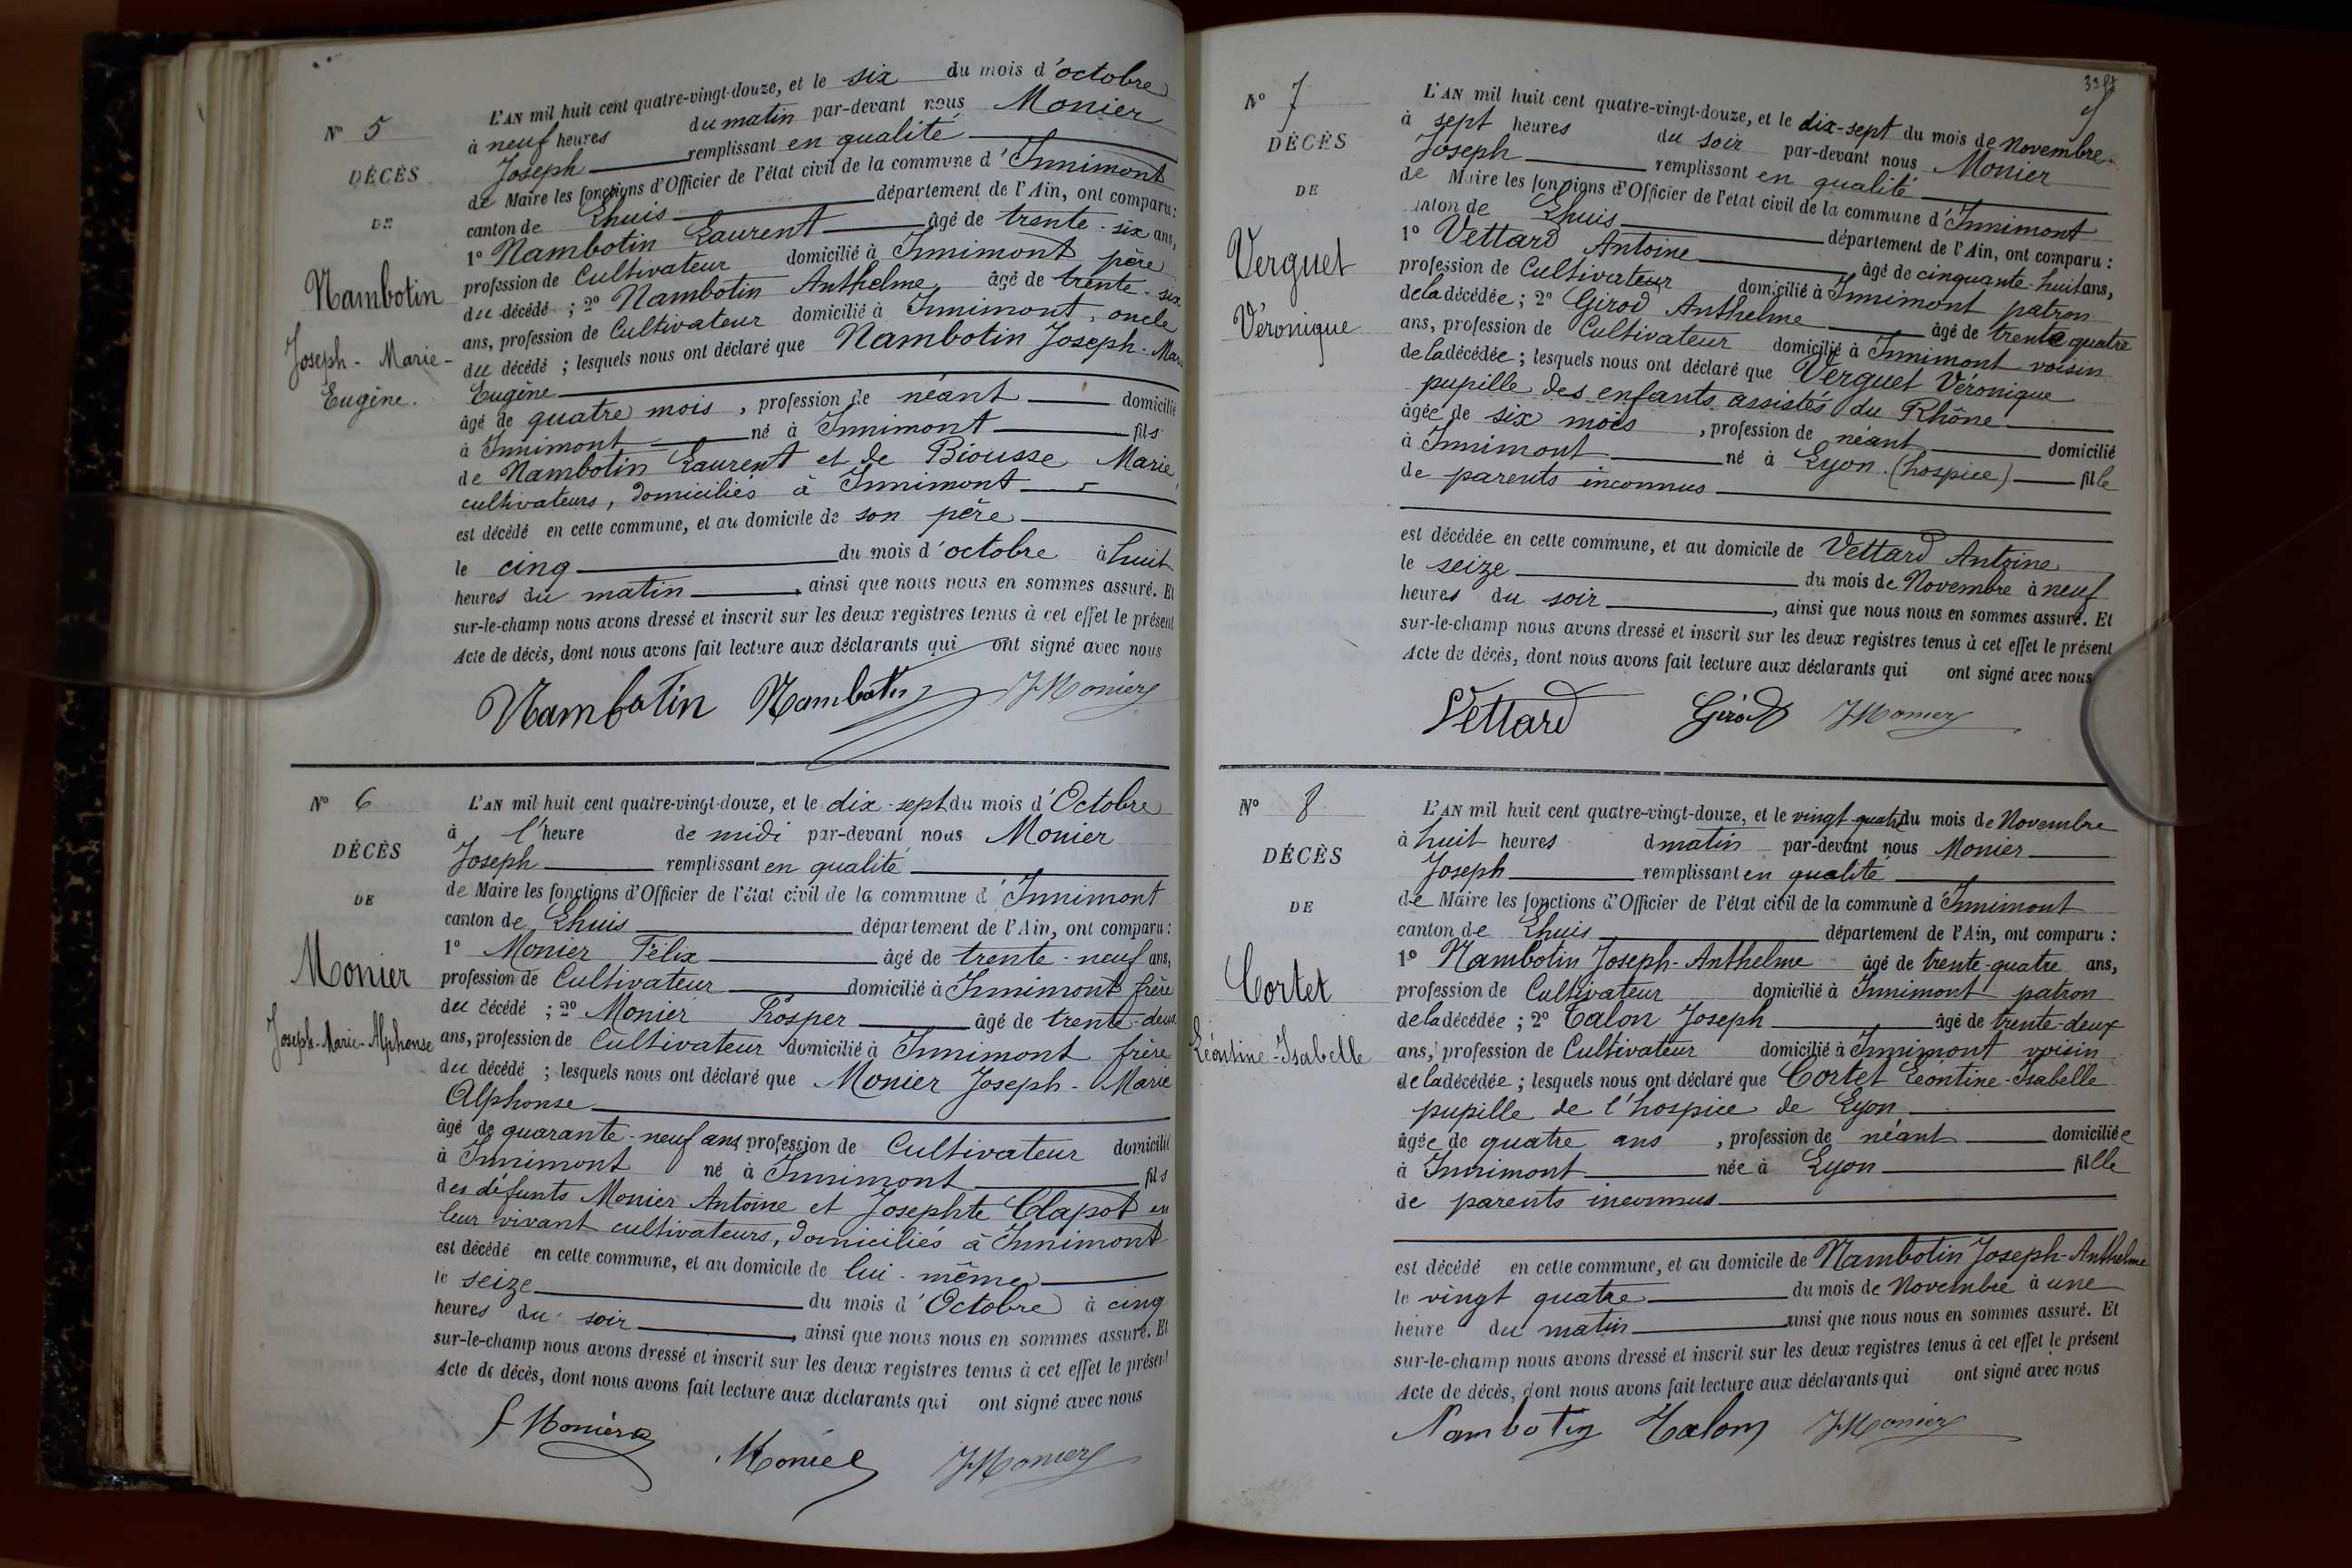 N° 5
DÉCÈS
DE
Nambotin
Joseph - Marie -
Eugène.
L'AN mil huit cent quatre-vingt-douze, et le six du mois d'octobre
à neuf heures du matin par-devant nous Monier
Joseph remplissant en qualité
de Maire les fonctions d'Officier de l'état civil de la commune d'Innimont
canton de Lhuis département de l'Ain, ont comparu :
1° Nambotin Laurent âgé de trente-six ans,
profession de Cultivateur domicilié à Innimont père
du décédé ; 2° Nambotin Anthelme âgé de trente-six
ans, profession de Cultivateur domicilié à Innimont, oncle
du décédé ; lesquels nous ont déclaré que Nambotin Joseph-Marie
Eugène
âgé de quatre mois, profession de néant domicilié
à Innimont né à Innimont fils
de Nambotin Laurent et de Biousse Marie,
cultivateurs, domiciliés à Innimont
est décédé en cette commune, et au domicile de son père
le cinq du mois d'octobre à huit
heures du matin, ainsi que nous nous en sommes assuré. Et
sur-le-champ nous avons dressé et inscrit sur les deux registres tenus à cet effet le présent
Acte de décès, dont nous avons fait lecture aux déclarants qui ont signé avec nous
Nambotin Nambotin JMonier
N° 6
DÉCÈS
DE
Monier
Joseph-Marie-Alphonse
L'AN mil huit cent quatre-vingt-douze, et le dix-sept du mois d'Octobre
à l'heure de midi par-devant nous Monier
Joseph remplissant en qualité
de Maire les fonctions d'Officier de l'état civil de la commune d'Innimont
canton de Lhuis département de l'Ain, ont comparu :
1° Monier Félix âgé de trente-neuf ans,
profession de Cultivateur domicilié à Innimont frère
du décédé ; 2° Monier Prosper âgé de trente-deux
ans, profession de Cultivateur domicilié à Innimont frère
du décédé ; lesquels nous ont déclaré que Monier Joseph-Marie
Alphonse
âgé de quarante-neuf ans, profession de Cultivateur domicilié
à Innimont né à Innimont fils
des défunts Monier Antoine et Josephte Clapot en
leur vivant cultivateurs, domiciliés à Innimont
est décédé en cette commune, et au domicile de lui-même
le seize du mois d'Octobre à cinq
heures du soir, ainsi que nous nous en sommes assuré. Et
sur-le-champ nous avons dressé et inscrit sur les deux registres tenus à cet effet le présent
Acte de décès, dont nous avons fait lecture aux déclarants qui ont signé avec nous
f Monier Monier JMonier
N° 7
DÉCÈS
DE
Verguet
Véronique
L'AN mil huit cent quatre-vingt-douze, et le dix-sept du mois de Novembre
à sept heures du soir par-devant nous Monier
Joseph remplissant en qualité
de Maire les fonctions d'Officier de l'état civil de la commune d'Innimont
canton de Lhuis département de l'Ain, ont comparu :
1° Vettard Antoine âgé de cinquante-huit ans,
profession de Cultivateur domicilié à Innimont patron
de la décédée ; 2° Girod Anthelme âgé de trente quatre
ans, profession de Cultivateur domicilié à Innimont voisin
de la décédée ; lesquels nous ont déclaré que Verguet Véronique
pupille des enfants assistés du Rhône
âgée de six mois, profession de néant domicilié
à Innimont né à Lyon (hospice) fille
de parents inconnus
est décédée en cette commune, et au domicile de Vettard Antoine
le seize du mois de Novembre à neuf
heures du soir, ainsi que nous nous en sommes assuré. Et
sur-le-champ nous avons dressé et inscrit sur les deux registres tenus à cet effet le présent
Acte de décès, dont nous avons fait lecture aux déclarants qui ont signé avec nous
Vettard Girod JMonier
N° 8
DÉCÈS
DE
Cortet
Léontine-Isabelle
L'AN mil huit cent quatre-vingt-douze, et le vingt-quatre du mois de Novembre
à huit heures d matin par-devant nous Monier
Joseph remplissant en qualité
de Maire les fonctions d'Officier de l'état civil de la commune d'Innimont
canton de Lhuis département de l'Ain, ont comparu :
1° Nambotin Joseph-Anthelme âgé de trente-quatre ans,
profession de Cultivateur domicilié à Innimont patron
de la décédée ; 2° Talon Joseph âgé de trente-deux
ans, profession de Cultivateur domicilié à Innimont voisin
de la décédée ; lesquels nous ont déclaré que Cortet Léontine-Isabelle
pupille de l'hospice de Lyon
âgée de quatre ans, profession de néant domiciliée
à Innimont née à Lyon fille
de parents inconnus
est décédé en cette commune, et au domicile de Nambotin Joseph-Anthelme
le vingt quatre du mois de Novembre à une
heure du matin ainsi que nous nous en sommes assuré. Et
sur-le-champ nous avons dressé et inscrit sur les deux registres tenus à cet effet le présent
Acte de décès, dont nous avons fait lecture aux déclarants qui ont signé avec nous
Nambotin Talon JMonier